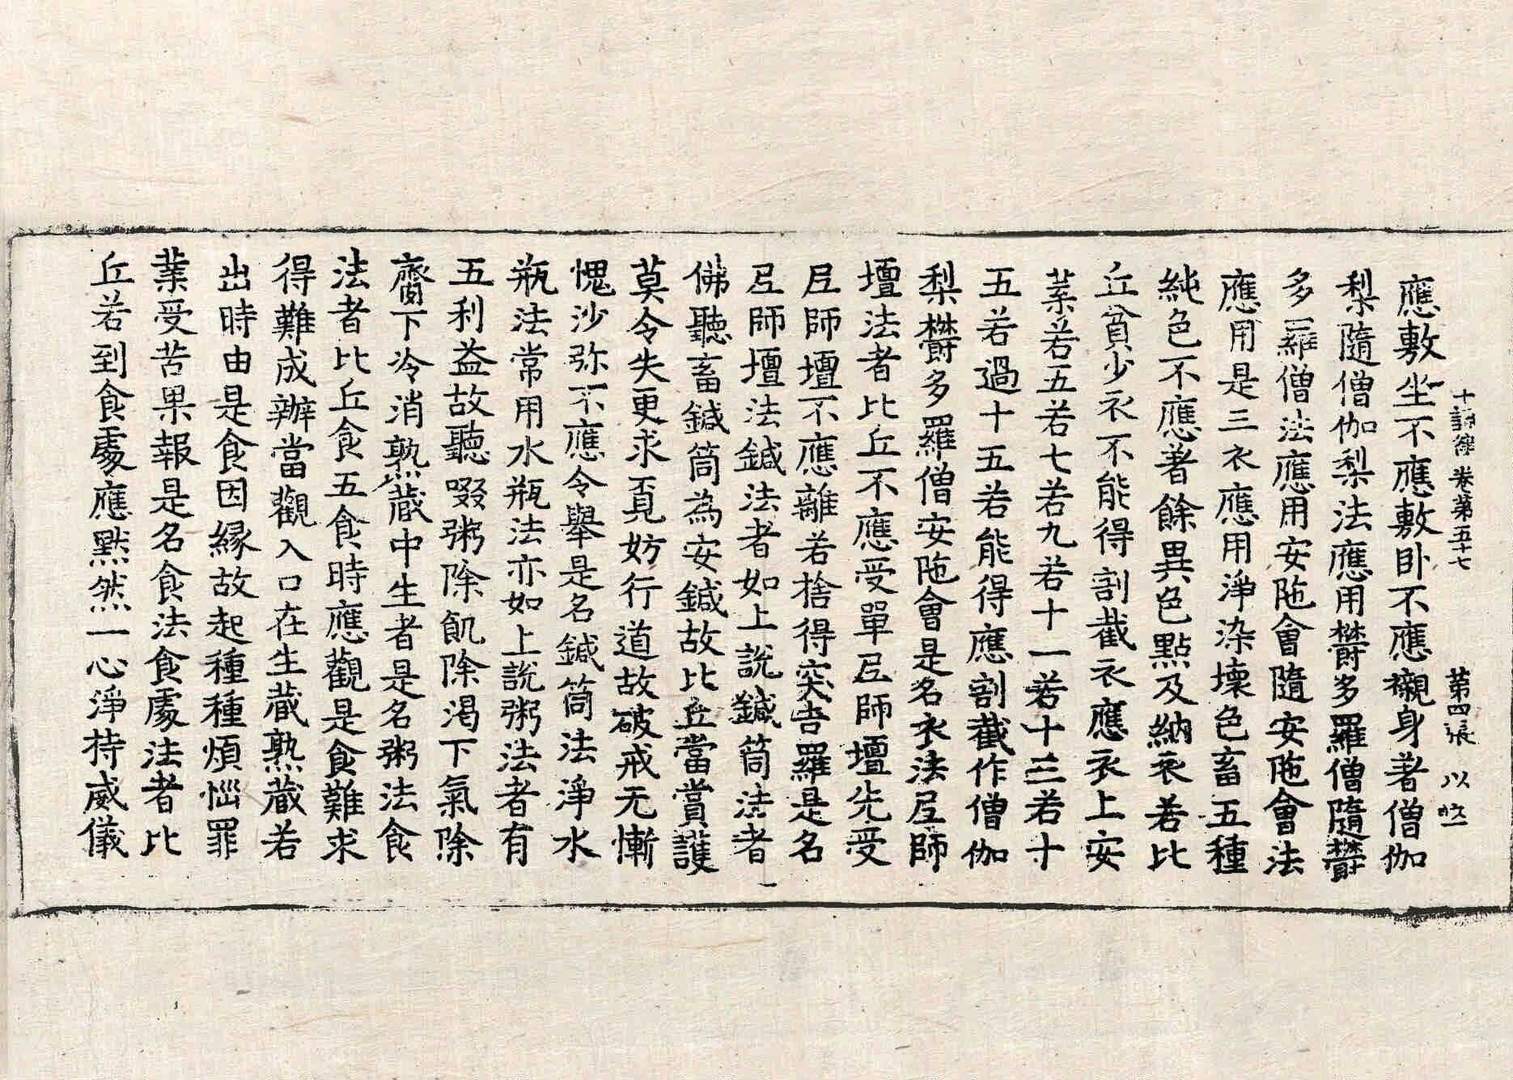 十誦律卷第五十七 第四張 以
應敷坐不應敷卧不應襯身著僧伽
梨隨僧伽梨法應用欝多羅僧隨欝
多羅僧法應用安陁會隨安陁會法
應用是三衣應用淨染壞色畜五種
純色不應著餘異色點及納衣若比
丘貧少衣不能得割截衣應衣上安
葉若五若七若九若十一若十三若十
五若過十五若能得應割截作僧伽
梨欝多羅僧安陁會是名衣法尼師
壇法者比丘不應受單尼師壇先受
尼師壇不應離若捨得突吉羅是名
尼師壇法鍼法者如上說鍼筒法者
佛聽畜鍼筒為安鍼故比丘當賞護
莫令失更求覓妨行道故破戒无慚
愧沙弥不應令舉是名鍼筒法淨水
瓶法常用水瓶法亦如上說粥法者有
五利益故聽啜粥除飢除渴下氣除
齎下冷消熟蔵中生者是名粥法食
法者比丘食五食時應觀是食難求
得難成辦當觀入口在生蔵熟蔵若
出時由是食因縁故起種種煩惱罪
業受苦果報是名食法食處法者比
丘若到食處應默然一心淨持威儀